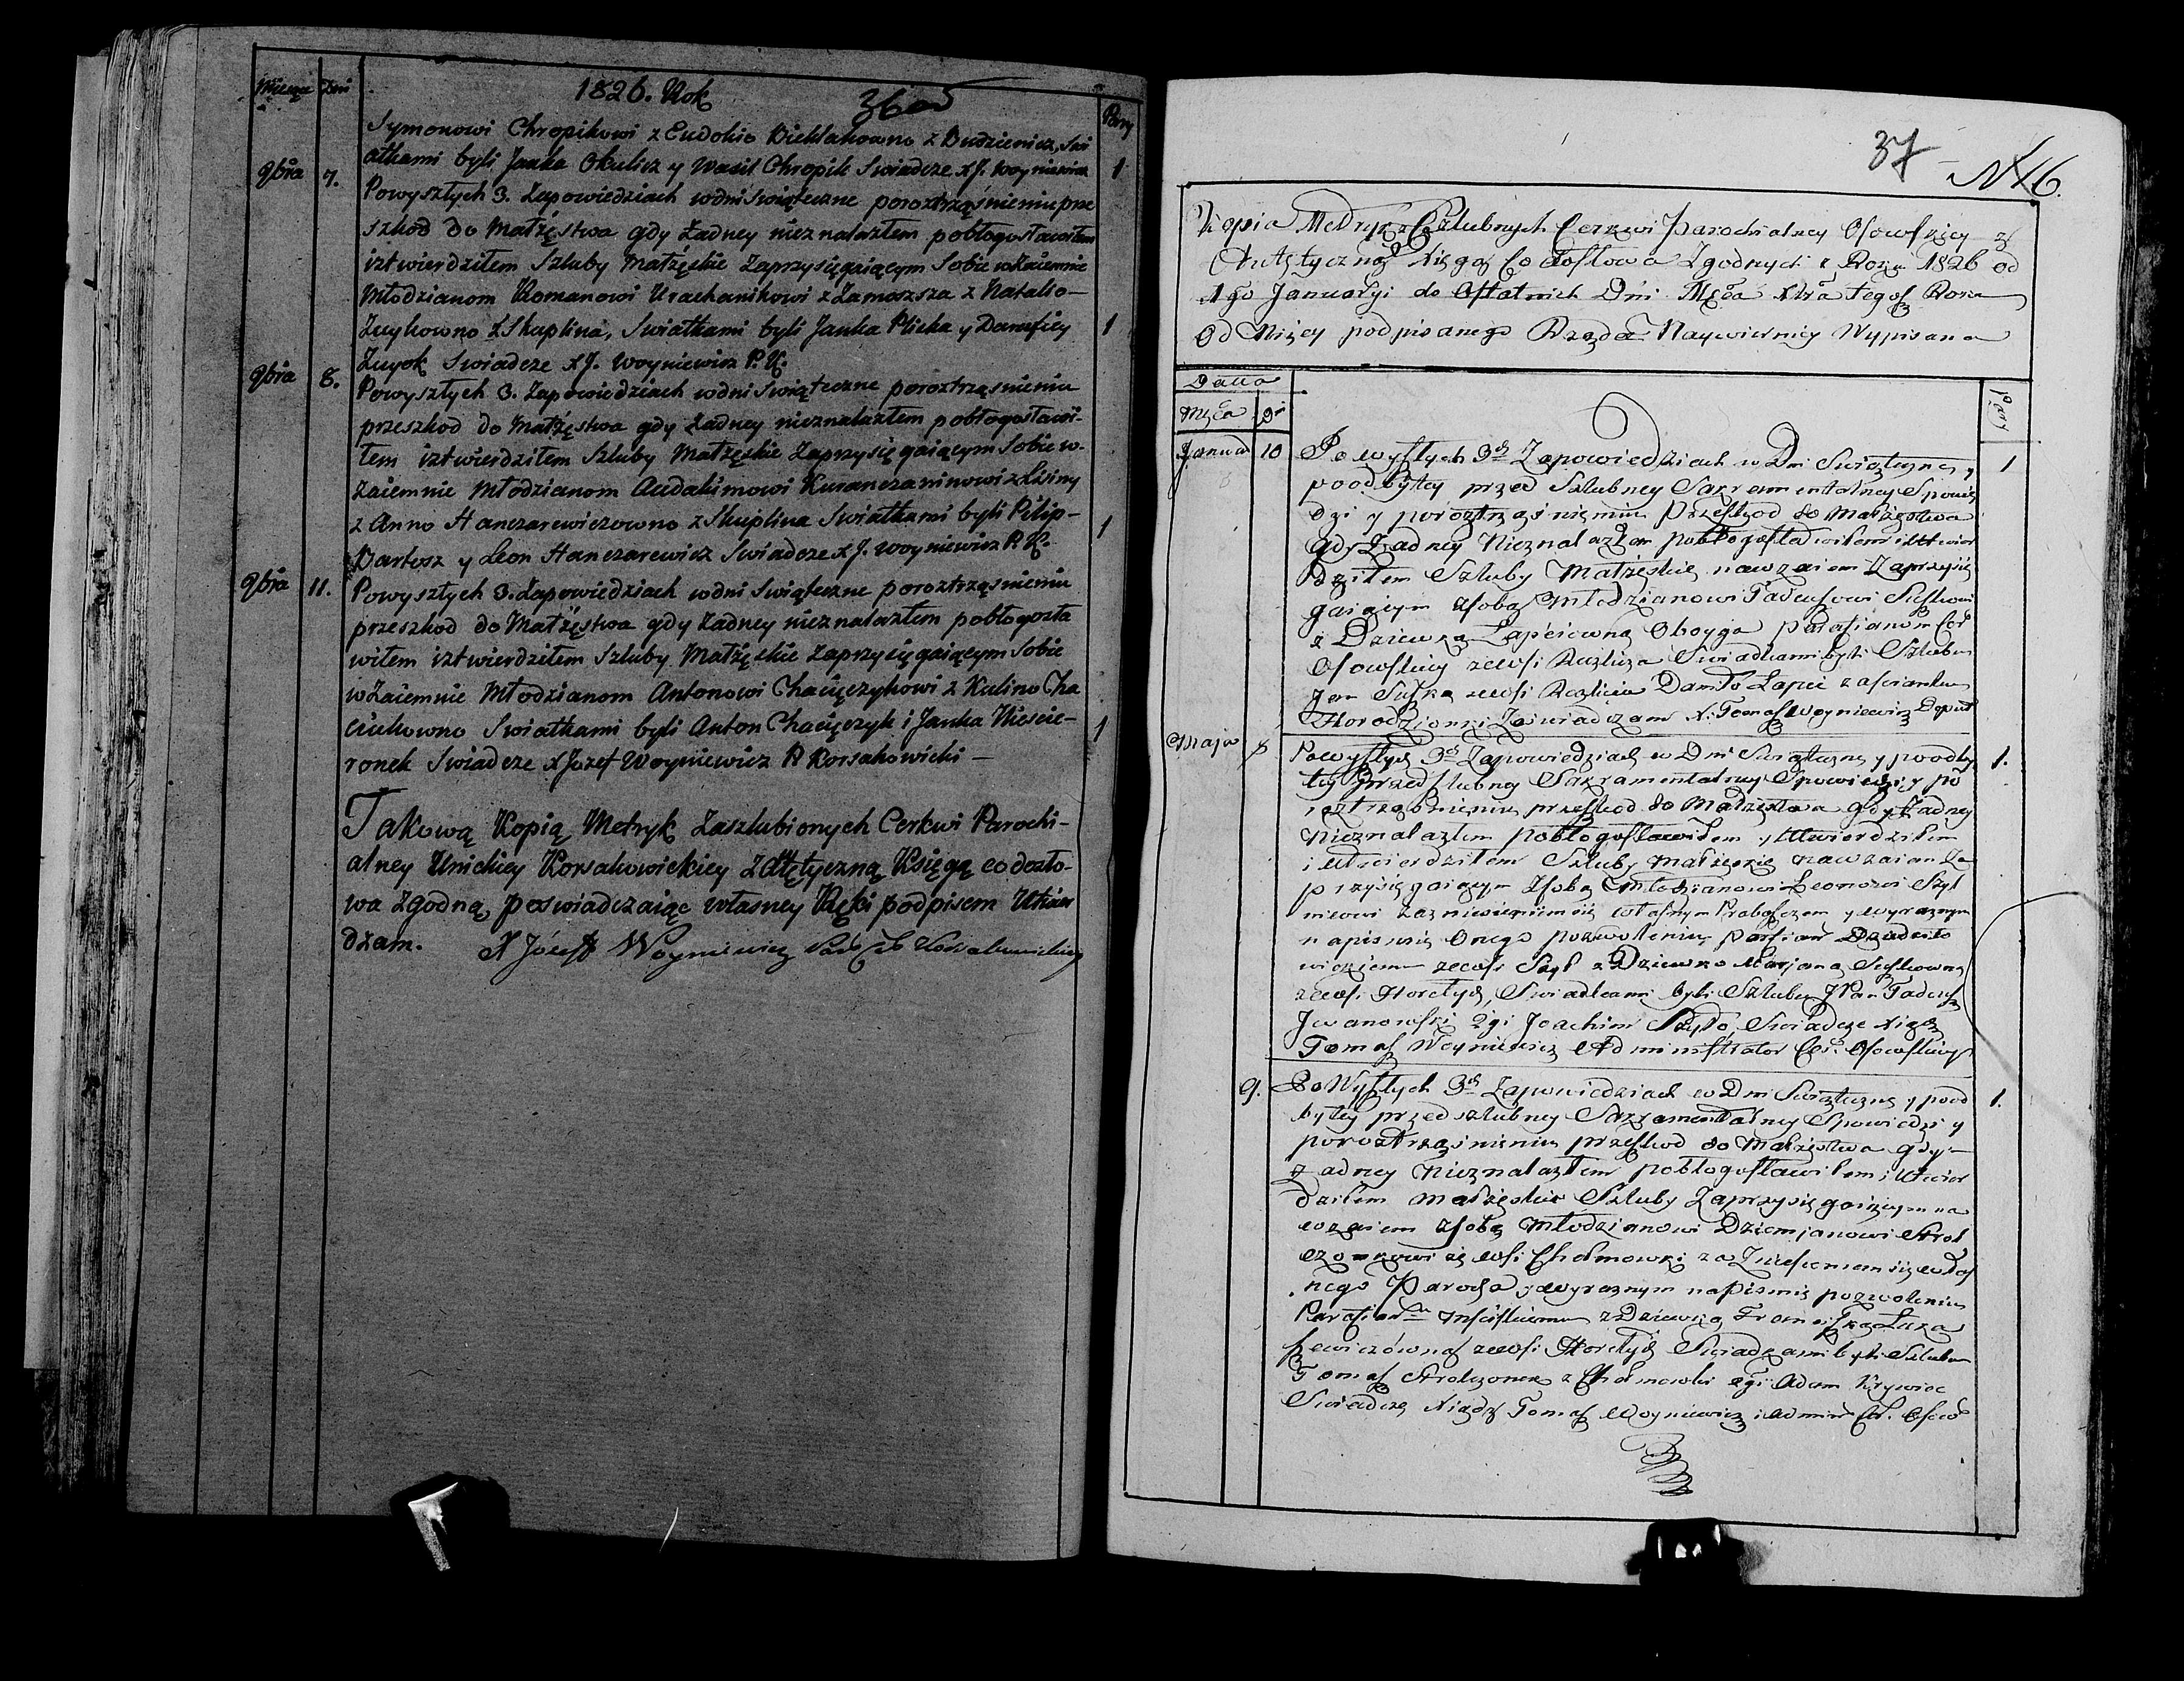 Miesiące Dni 1826. Rok 36 Pary
Symonowi Chropikowi z Eudokio Bieklakowno z Budzienicz, Swi
atkami byli Janka Okulicz y Wasil Chropik Swiadcze X J. Woyniewicz 1
9bra 7. Powyszłych 3. Zapowiedziach wdni Swiąteczne poroztrząsnieniu prze
szkod do Małżęstwa gdy Żadney nieznalazłem pobłogosławiłem
iztwierdziłem Szluby Małżęskie Zaprzysięgaiącym Sobie wzaiemnie
Młodzianom Romanowi Urachanikowi z Zamoszsza z Natalio
Zuykowno z Skuplina, Swiatkami byli Janka Plicka y Daroficy 1
Zuyok Swiadcze X J. Woyniewicz P. K.
9bra 8. Powyszłych 3. Zapowiedziach wdni Swiąteczne poroztrząsnieniu
przeszkod do Małżęstwa gdy Żadney nieznalazłem pobłogosławi-
łem iztwierdziłem Szluby Małżęskie Zaprzysięgaiącym Sobie w-
zaiemnie Młodzianom Audakimowi Kuranczaninowi z Łśiny
z Anno Hanczarewiczowno z Skuplina Swiatkami byli Pilip- 1
Bartosz y Leon Hanczarewicz Swiadcze X J. Woyniewicz P. K.
9bra 11. Powyszłych 3. Zapowiedziach wdni Swiąteczne poroztrząsnieniu
przeszkod do Małżęstwa gdy Żadney nieznalazłem pobłogosła
wiłem iztwierdziłem Szluby Małżęskie Zaprzysięgaiącym Sobie
wzaiemnie Młodzianom Antonowi Chacięczykowi z Kulino Cha
ciukowno Swiatkami byli Anton Chacięczyk i Janka Niescie- 1
ronek Swiadcze X Jozef Woyniewicz P. Korsakowicki —
Takową Kopią Metryk Zaszlubionych Cerkwi Parochi-
alney Unickiey Korsakowickiey z Atętyczną Księgą co dosło-
wa zgodną, poswiadczaiąc własney Ręki podpisem Utwier
dzam. X Józeff Woyniewicz
37 N 16.
Kopia Metryk Szlubnych Cerkwi Parochialney Osowskiey z
Autętyczną Xięgą Co Dosłowa Zgodnych z Roku 1826 od
1go Januaryi do Ostatnich Dni Mca Xbra tegoż Roku
Od Niżey podpisanego Rządcę Naywierniey Wypisana
Datta
Mca Dni Pary
Januar 10 Po wyszłych 3ch Zapowiedziach w Dni Swiąteczne y 1
poodbytey przed Szlubney Sakramentalney Spowie
dzi y poroztrząsnieniu Przeszkod do Małżęstwa
gdy Żadney Nieznalazłem pobłogosławiłem i Utwier
dziłem Szluby Małżęskie nawzaiem Zaprzysię
gaiącym zsobą Młodzianowi Tadeuszowi Suszkowi
z Dziewką Łapciowną Oboyga Parafianom Cer
Osowskiey zewsi Swiadkami byli Szlubu
Jan Suszko zewsi Daniło Łapci
Zaswiadczam X. Tomasz Woyniewicz
Maja 8 Powyszłych 3ch Zapowiedziach w Dni Swiąteczne y poodby 1.
tey przed szlubney Sakramentalney Spowiedzi y po
roztrząsnieniu przeszkod do Małżęstwa gdy Żadney
Nieznalazłem pobłogosławiłem y Utwierdziłem
i Utwierdziłem Szluby Małżęskie nawzaiem Za
przysięgaiącym zsobą Młodzianowi Leonowi Szył
własnym Proboszczem y wyraznym
napismie Onego pozwoleniu Parfian
zewsi Szył z Dziewko Marjaną Suszkowną
zewsi Horełych, Swiadkami byli Szlubu JPan Tadeusz
Jwanowski 2gi Joachim Szyło, Swiadcze Xiądz
Tomasz Woyniewicz Administrator Cer. Osowskiey
9. Po Wyszłych 3ch Zapowiedziach w Dni Swiąteczne y pood 1.
bytey przed szlubney Sakramentalney Spowiedzi y
poroztrząsnieniu przeszkod do Małżęstwa gdy
Żadney Nieznalazłem pobłogosławiłem i Utwier
dziłem Małżęskie Szluby Zaprzysięgaiącym na
wzaiem zsobą Młodzianowi Dziemjanowi Strol
czonkowi ze wsi Chołmowki za Zniesieniem się włas
nego Parocha y wyraznym napismie pozwoleniu
z Dziewką
zewsi Horełych Swiadkami byli Szlubu
Tomasz Strolczonek z Chołmowki 2gi Adam Krywiec
Swiadcze Xiądz Tomasz Woyniewicz Admin Cer. Osow